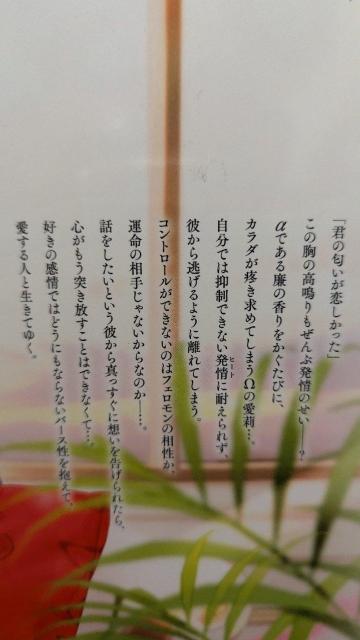 「君の匂いが恋しかった」
この胸の高鳴りもぜんぶ発情のせい――?
αである廉の香りをかぐたびに、
カラダが疼き求めてしまうΩの愛莉…。
自分では抑制できない発情に耐えられず、
ヒート
彼から逃げるように離れてしまう。
コントロールができないのはフェロモンの相性か、
運命の相手じゃないからなのか――。
話をしたいという彼から真っすぐに想いを告げられたら、
心がもう突き放すことはできなくて…。
好きの感情ではどうにもならないバース性を抱えて、
愛する人と生きてゆく。